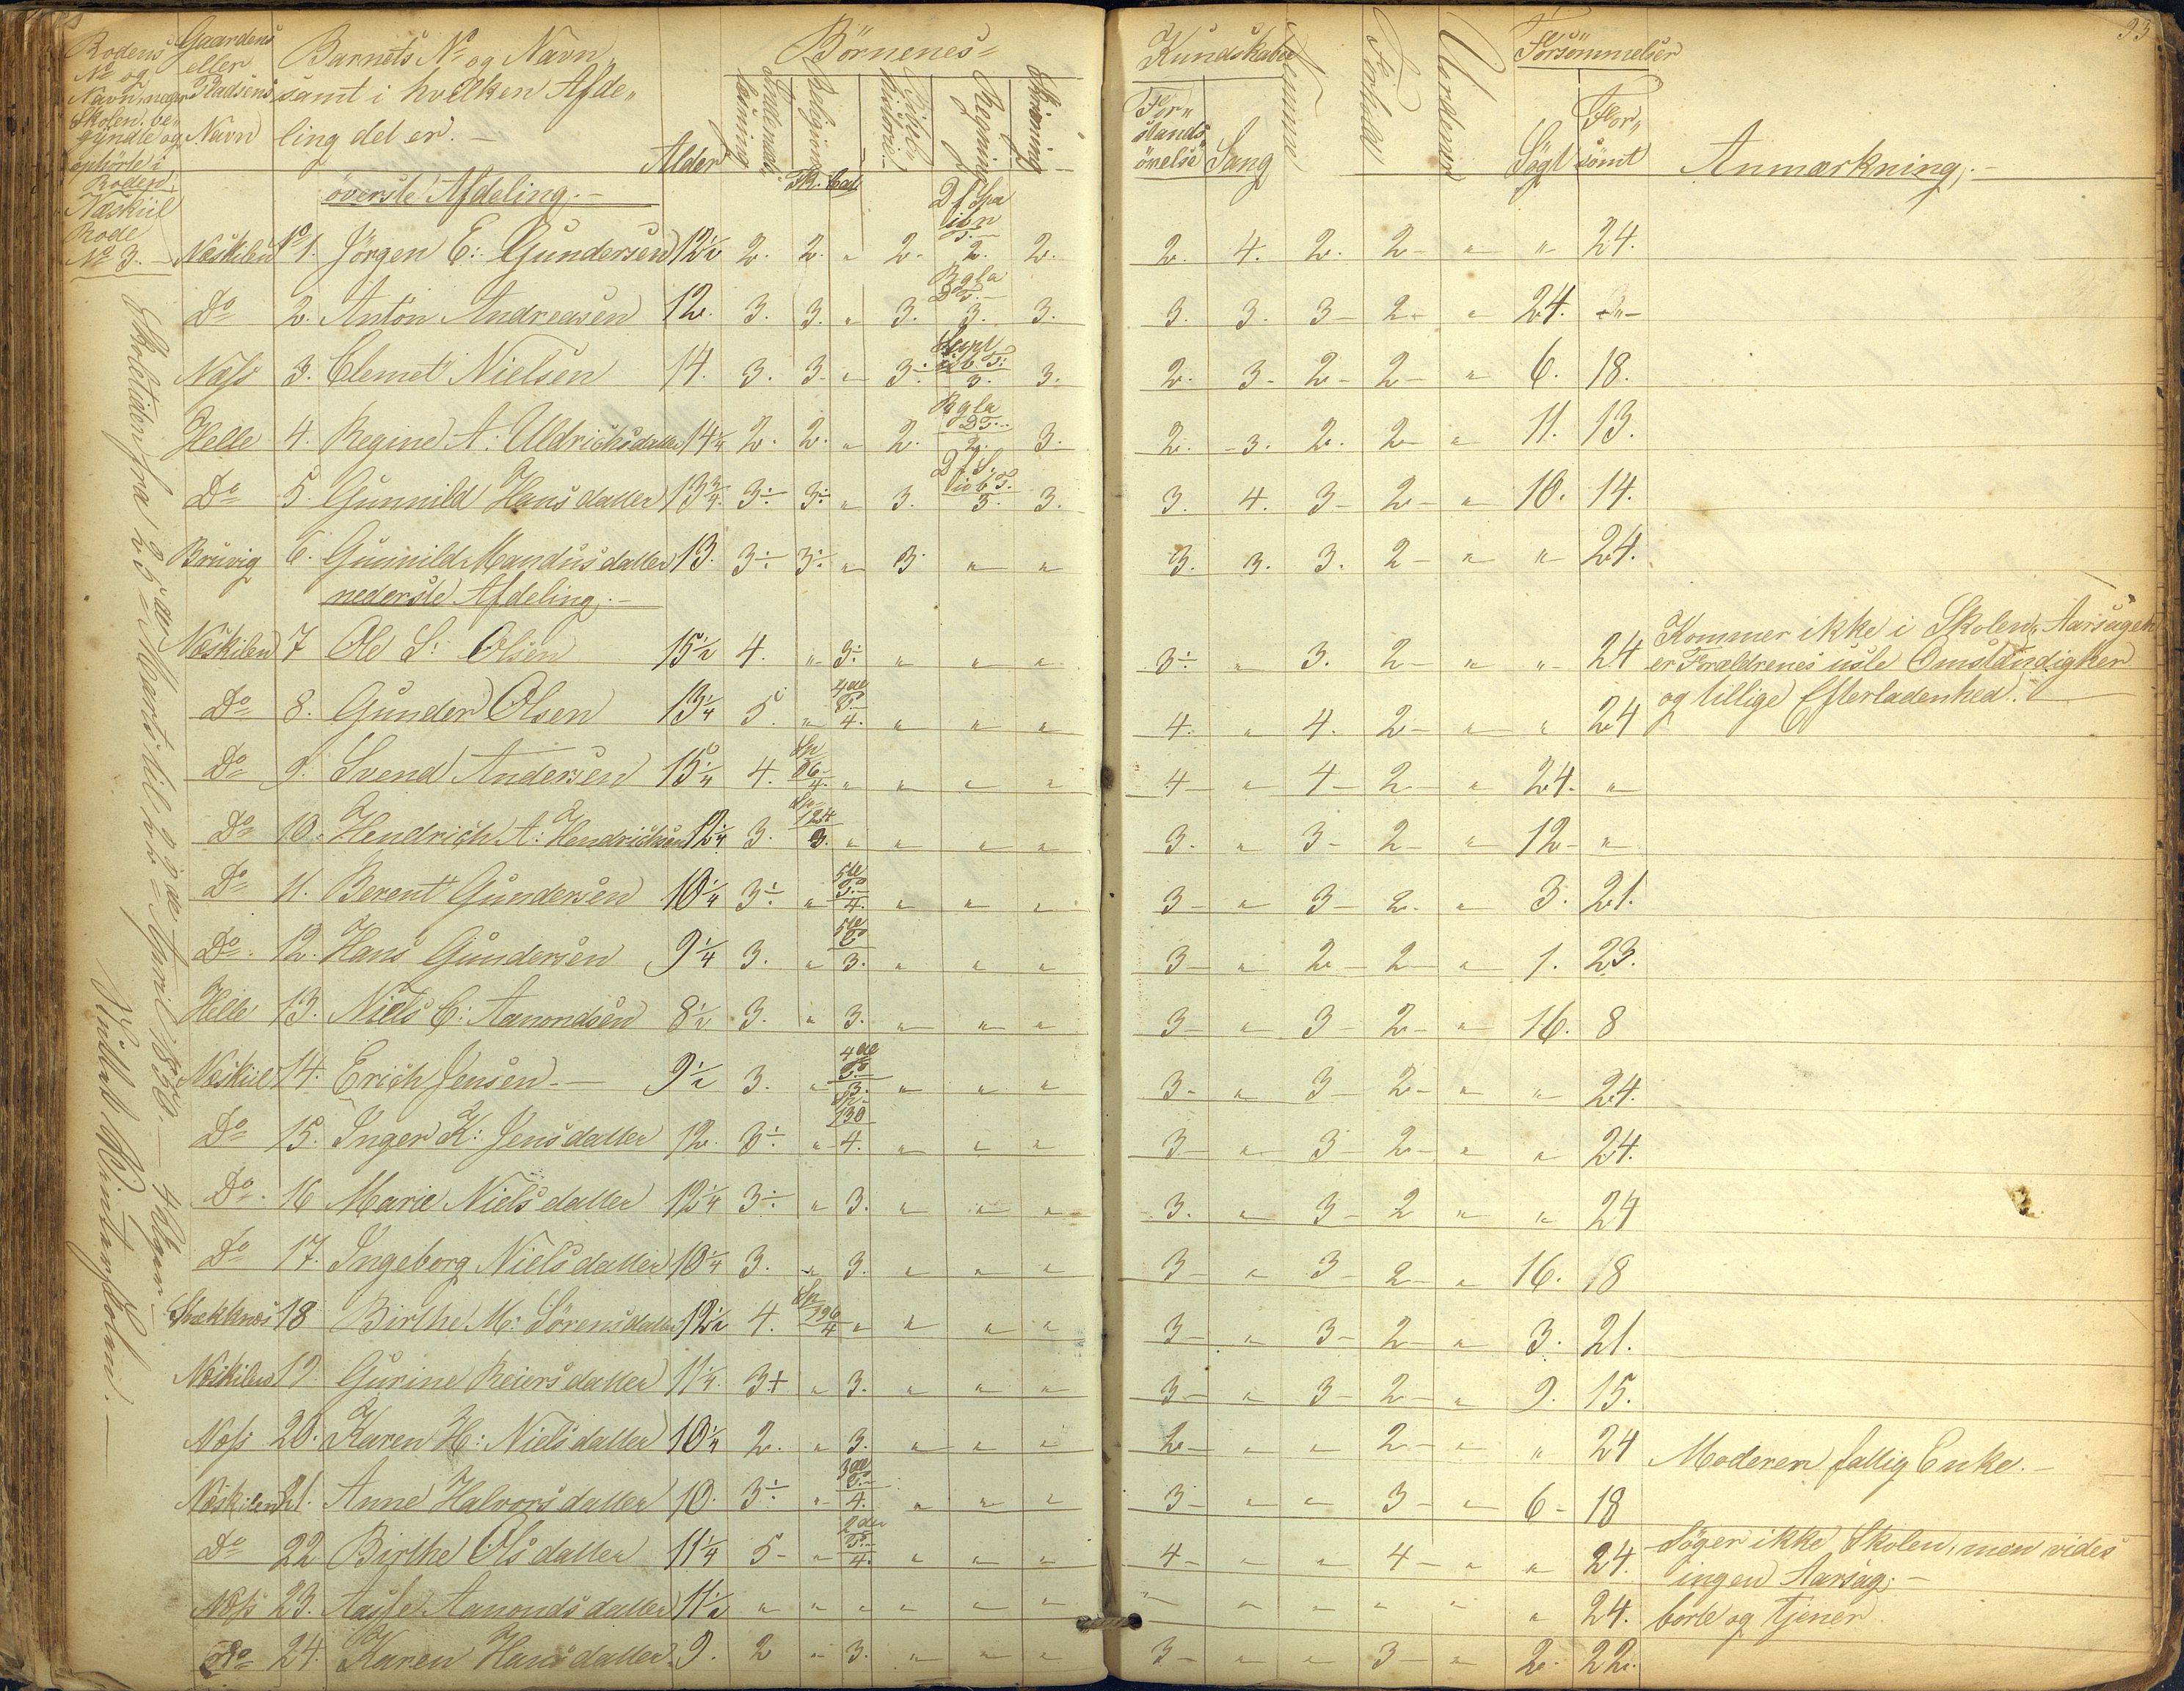 93
Rodens Nº og Navn, naar Skolen begyndte og ophörte i Roden
Gaardens eller Pladsens Navn
Barnets Nº og Navn, samt i hvilken Afdeling det er. —
Alder
Börnenes
Indenadslæsning
Religion
Bibelhistorie
Regning
Skrivning
Kundskaber
Forstandsövelse
Sang
Nemme
Forhold
Uordener
Forsömmelser
Sögt
Forsömt
Anmærkning. —
Næskiil Rode Nº 3. —
överste Afdeling. —
Næskilen Nº 1. Jörgen E: Gundersen 12½ 2. 2. „ 2. 2. 2. 2. 4. 2. 2 — „ „ 24.
Dº 2. Anton Andreasen 12. 3. 3. „ 3. 3. 3. 3. 3. 3 — 2 — „ 24. „
Næss 3. Clemet Nielsen 14. 3. 3. „ 3÷ 3. 3. 2. 3 — 2 — 2 — „ 6. 18.
Helle 4. Regine A: Uldrichsdatter 14¼ 2. 2. „ 2. 2. 3. 2. 3. 2. 2 — „ 11. 13.
Dº 5. Gunnild Hansdatter 13¾ 3÷ 3÷ „ 3. 3. 3. 3. 4. 3 — 2 — „ 10. 14.
Bouvig 6. Gunnild Mandusdatter 13. 3÷ 3÷ „ 3 „ „ 3. 3. 3. 2 — „ „ 24.
nederste Afdeling. —
Næskilen 7 Ole S: Olsen 15½ 4. „ 3÷ „ „ „ 3÷ „ 3. 2 — „ „ 24 Kommer ikke i Skolen, Aarsagen
er Forældrenes usle Omstændigheder
Dº 8. Gunder Olsen 13¼ 5. „ 4. „ „ „ 4. „ 4. 2 — „ „ 24 og tillige Efterladenhed. —
Dº 9. Svend Andersen 15¼ 4. 4. „ „ „ „ 4 — „ 4 — 2 — „ 24. „
Dº 10. Hendrich A: Hendrichsen 12¼ 3. 3. „ „ „ „ 3. „ 3 — 2 — „ 12 — „
Dº 11. Berent Gundersen 10¼ 3÷ „ 4. „ „ „ 3 — „ 3 — 2. „ 3. 21.
Dº 12. Hans Gundersen 9¼ 3. „ 3. „ „ „ 3 — „ 2 — 2 — „ 1. 23.
Helle 13. Niels C: Aanondsen 8½ 3. „ 3. „ „ „ 3 — „ 3 — 2 — „ 16. 8
Næskiil 14. Erich Jensen — 9½ 3. „ 3. „ „ „ 3 — „ 3 2 — „ „ 24.
Dº 15. Inger K: Jensdatter 12. 3÷ „ 4. „ „ „ 3 — „ 3 2 — „ „ 24.
Dº 16 Marie Nielsdatter 12¼ 3÷ „ 3. „ „ „ 3. „ 3 — 2 „ „ 24
Dº 17. Ingeborg Nielsdatter 10¼ 3. „ 3. „ „ „ 3 — „ 3 2 — „ 16. 18
18 Birthe M: Sörensdatter 12½ 4. 4 „ „ „ „ 3 — „ 3 — 2 — „ 3. 21.
Næskilen 19. Gurine Reiersdatter 11¼ 3+ „ 3. „ „ „ 3 — „ 3 — 2 — „ 9. 15.
Næss 20. Karen H: Nielsdatter 10¼ 2. „ 3. „ „ „ 2 — „ „ 2 — „ „ 24 Moderen fattig Enke. —
Næskilen 21. Anne Halvorsdatter 10. 3÷ „ 4. „ „ „ 3 — „ „ 3 — „ 6 — 18
Dº 22 Birthe Olsdatter 11¼ 5 — „ 4. „ „ „ 4 — „ „ 4 — „ „ 24. Söger ikke Skolen, men vides
ingen Aarsag. —
Næss 23. Aasse Aanondsdatter 11½ „ „ „ „ „ „ „ „ „ „ „ „ 24. borte og tjener
Dº 24. Karen Hansdatter 9. 2 „ 3. „ „ „ 3 — „ „ 3 — „ 2. 22.
Skoletiden fra 23de Marts til 22de April 1859. — 4 Uger —